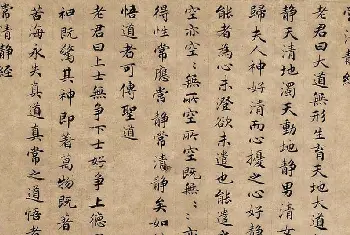 清靜經
老君曰大道無形生育天地大道
靜天清地濁天動地靜男清女
歸夫人神好清而心擾之心好靜
能者為心未澄欲未遣也能遣
空亦空〻無所空所空既無〻〻亦
得性常應常靜常清靜矣如
悟道者可傳聖道
老君曰上士無爭下士好爭上德
既驚其神即著萬物既著
苦海永失真道真常之道悟者
常清靜經